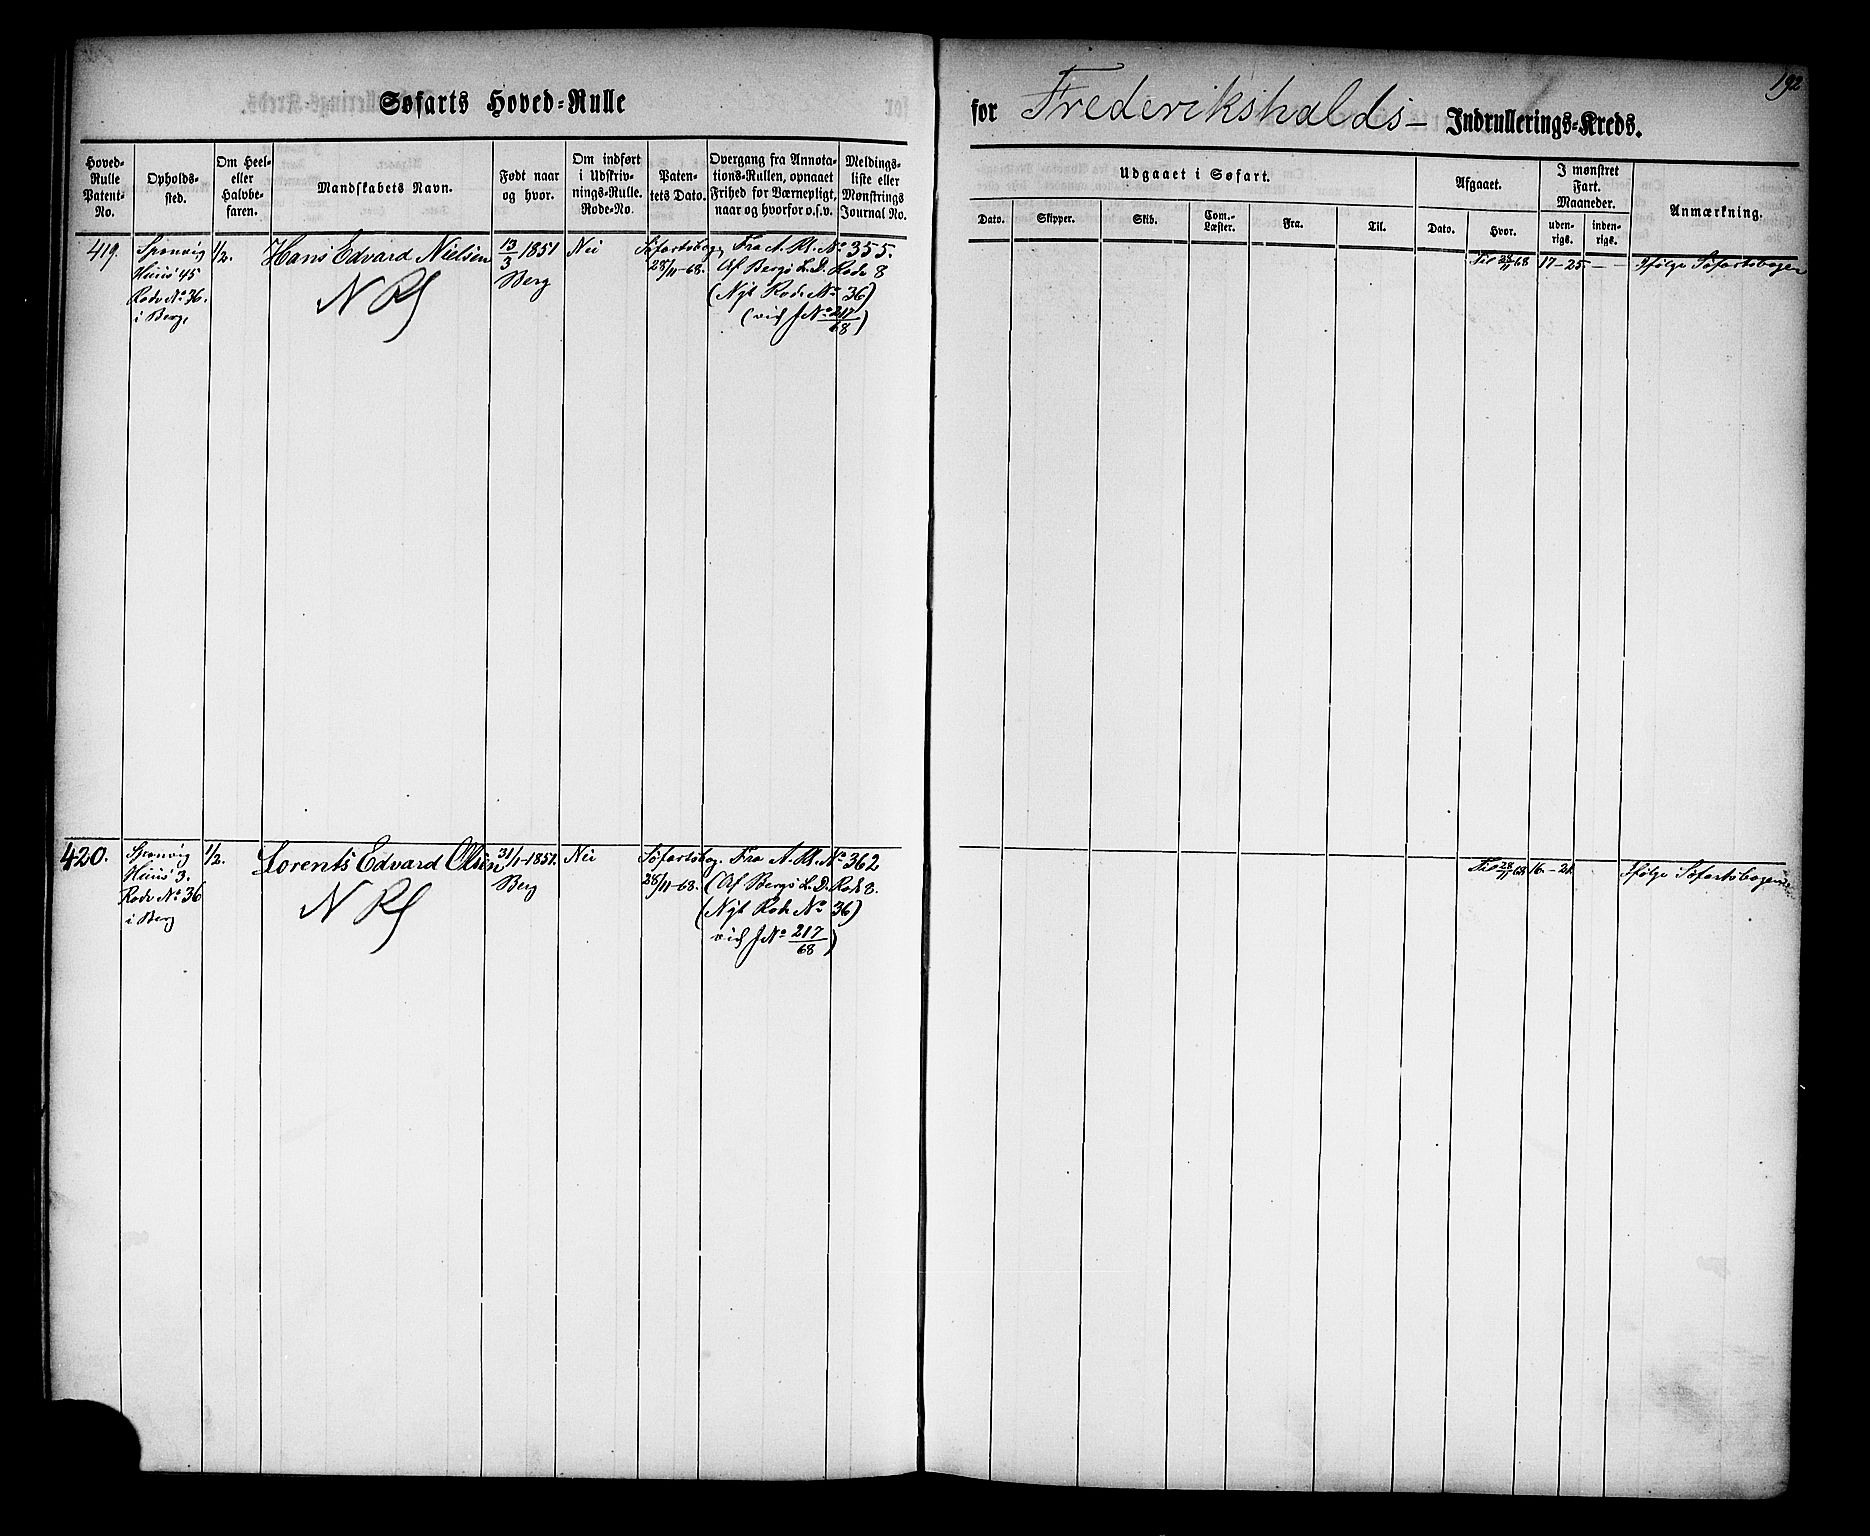 Søfarts Hoved-Rulle
for Frederikshalds- Indrullerings-Kreds.
192
Hoved-Rulle Patent-No.
Opholds-sted.
Om Heel- eller Halvbe-faren.
Mandskabets Navn.
Født naar og hvor.
Om indført i Udskriv-nings-Rulle. Rode-No.
Paten-tets Dato.
Overgang fra Annota-tions-Rullen, opnaaet Frihed for Værnepligt, naar og hvorfor o.s.v.
Meldings-liste eller Mønstrings Journal No.
Udgaaet i Søfart.
Dato.
Skipper.
Skib.
Com.-Læster.
Fra.
Til.
Afgaaet.
Dato.
Hvor.
I mønstret Fart. Maaneder.
uden-rigs.
inden-rigs.
Anmærkning.
419.
Sponvig
Huus 45
Rode No 36.
i Berg,
1/2.
Hans Edvard Nielsen
13/3 1851
Berg
Nei
Søfartsbog,
28/11-68.
Fra A. Rl. No 355.
Af Bergs L. D. Rode 8
(Nyt Rode No 36)
(vid J No 217/68)
Til 28/11 68
17-25.
— —
Ifølge Søfartsbogen
420.
Sponvig
Huus 3.
Rode No 36
i Berg
1/2.
Lorents Edvard Olsen
31/1-1851.
Berg
Nei
Søfartsbog.
28/11-68.
Fra A. Rl. No 362
(Af Bergs L. D. Rode 8.
(Nyt Rode No 36)
vid J No 217/68)
Til 28/11 68
16.-21.
Ifølge Søfartsbogen